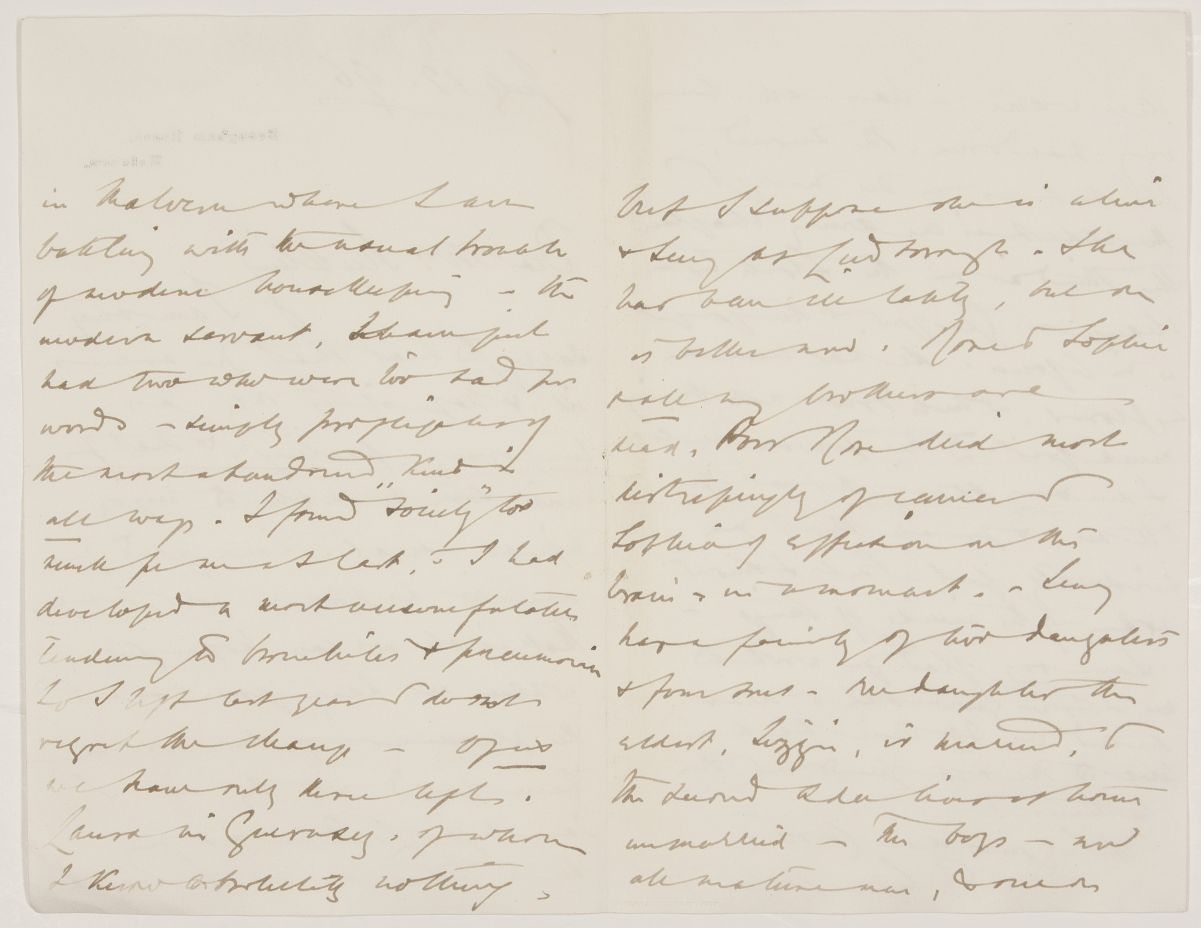 in Malvern where I am
battling with the usual trouble
of modern housekeeping – the
modern servant, I have just
had two who were too bad for
words – simply profligates of
the most abandoned kind in
all ways. I found "Society" too
much for me at last, – I had
developed a most uncomfortable
tendency to bronchitis & pneumonia
so I left last year & do not
regret the change – Of us
we have only three left.
Laura in Guernsey, of whom
I know absolutely nothing,
but I suppose she is alive
& Lucy at She
had been ill lately, but she
is better now. Rose & Sophie
& all my brothers are
dead. Poor Rose died most
distressingly of cancer &
Sophie of effusion on the
brain – in a moment. – Lucy
has a family of two daughters
& four sons – One daughter the
eldest, Lizzie, is married, &
the second Ada lives at home
unmarried – The boys – now
all mature men, & one on